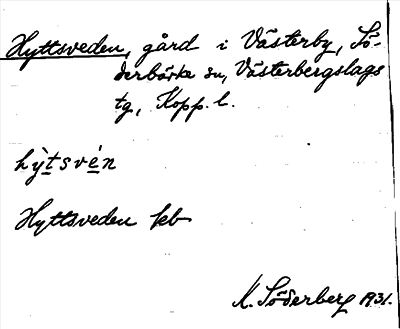 Hyttsveden, gård i Västerby, Sö-
derbärke sn, Västerbergslags
tg, Kopp. l.
hỳtsvén
Hyttsveden kb
K. Söderberg 1931.